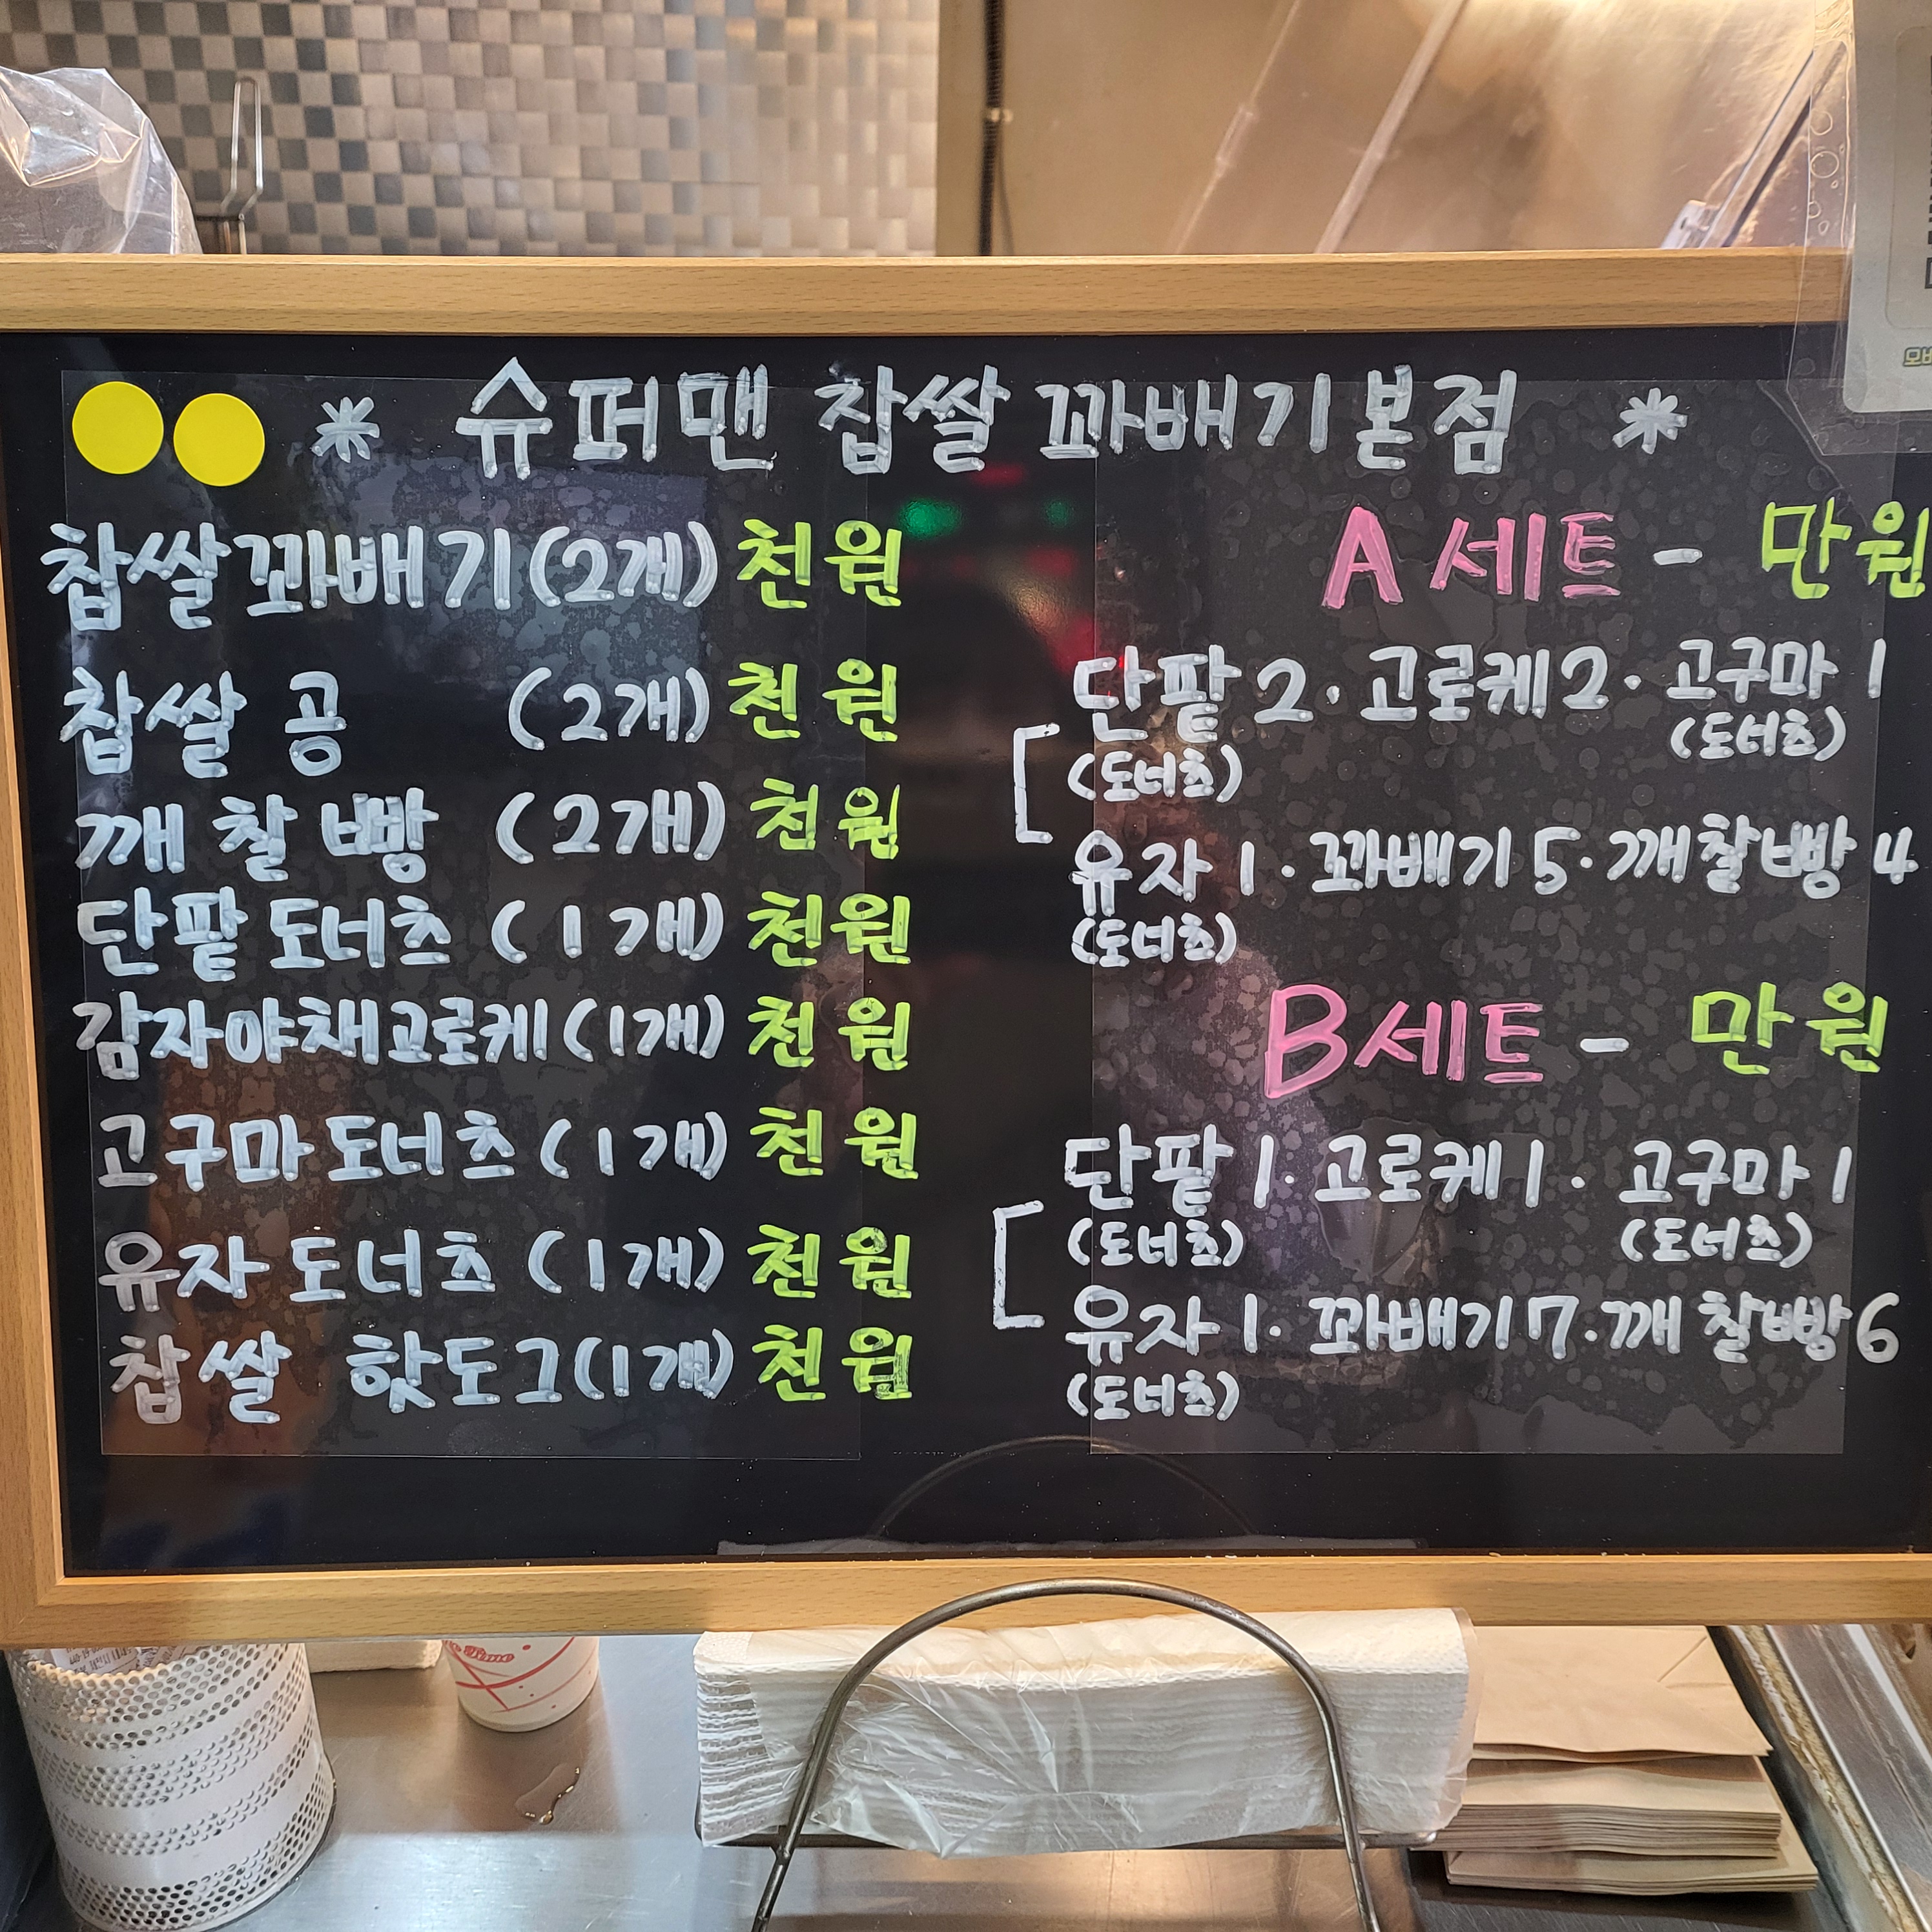 * 슈퍼맨 찹쌀 꽈배기본점 *
찹쌀꽈배기(2개) 천원
찹쌀 공 (2개) 천원
깨찰빵 (2개) 천원
단팥도너츠 (1개) 천원
감자야채고로케(1개) 천원
고구마도너츠 (1개) 천원
유자도너츠 (1개) 천원
찹쌀 핫도그(1개) 천원
A세트 - 만원
단팥2·고로케2·고구마1
(도너츠) (도너츠)
유자1·꽈배기5·깨찰빵4
(도너츠)
B세트 - 만원
단팥1·고로케1·고구마1
(도너츠) (도너츠)
유자1·꽈배기7·깨찰빵6
(도너츠)